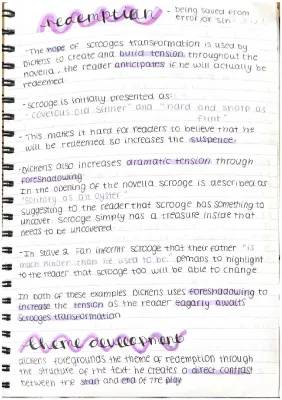 redemption
- being saved from
error or sin
- The hope of scrooges transformation is used by
Dickens to create and build tension throughout the
novella, the reader anticipates if he will actually be
redeemed
- scrooge is initially presented as:
- "covetous old sinner" and "hard and sharp as
flint"
- This makes it hard for readers to believe that he
will be redeemed so increases the suspence
- Dickens also increases dramatic tension through
foreshadowing
In the opening of the novella scrooge is described as
"solitary as an oyster"
suggesting to the reader that scrooge has something to
uncover. scrooge simply has a treasure inside that
needs to be uncovered
- In stave 2 Fan informs scrooge that their father "is
much kinder than he used to be" perhaps to highlight
to the reader that scrooge too will be able to change
In both of these examples Dickens uses foreshadowing to
increase the tension as the reader eagarly awaits
scrooges transformation
theme development
dickens foregrounds the theme of redemption through
the structure of the text he creates a direct contrast
between the start and end of the play